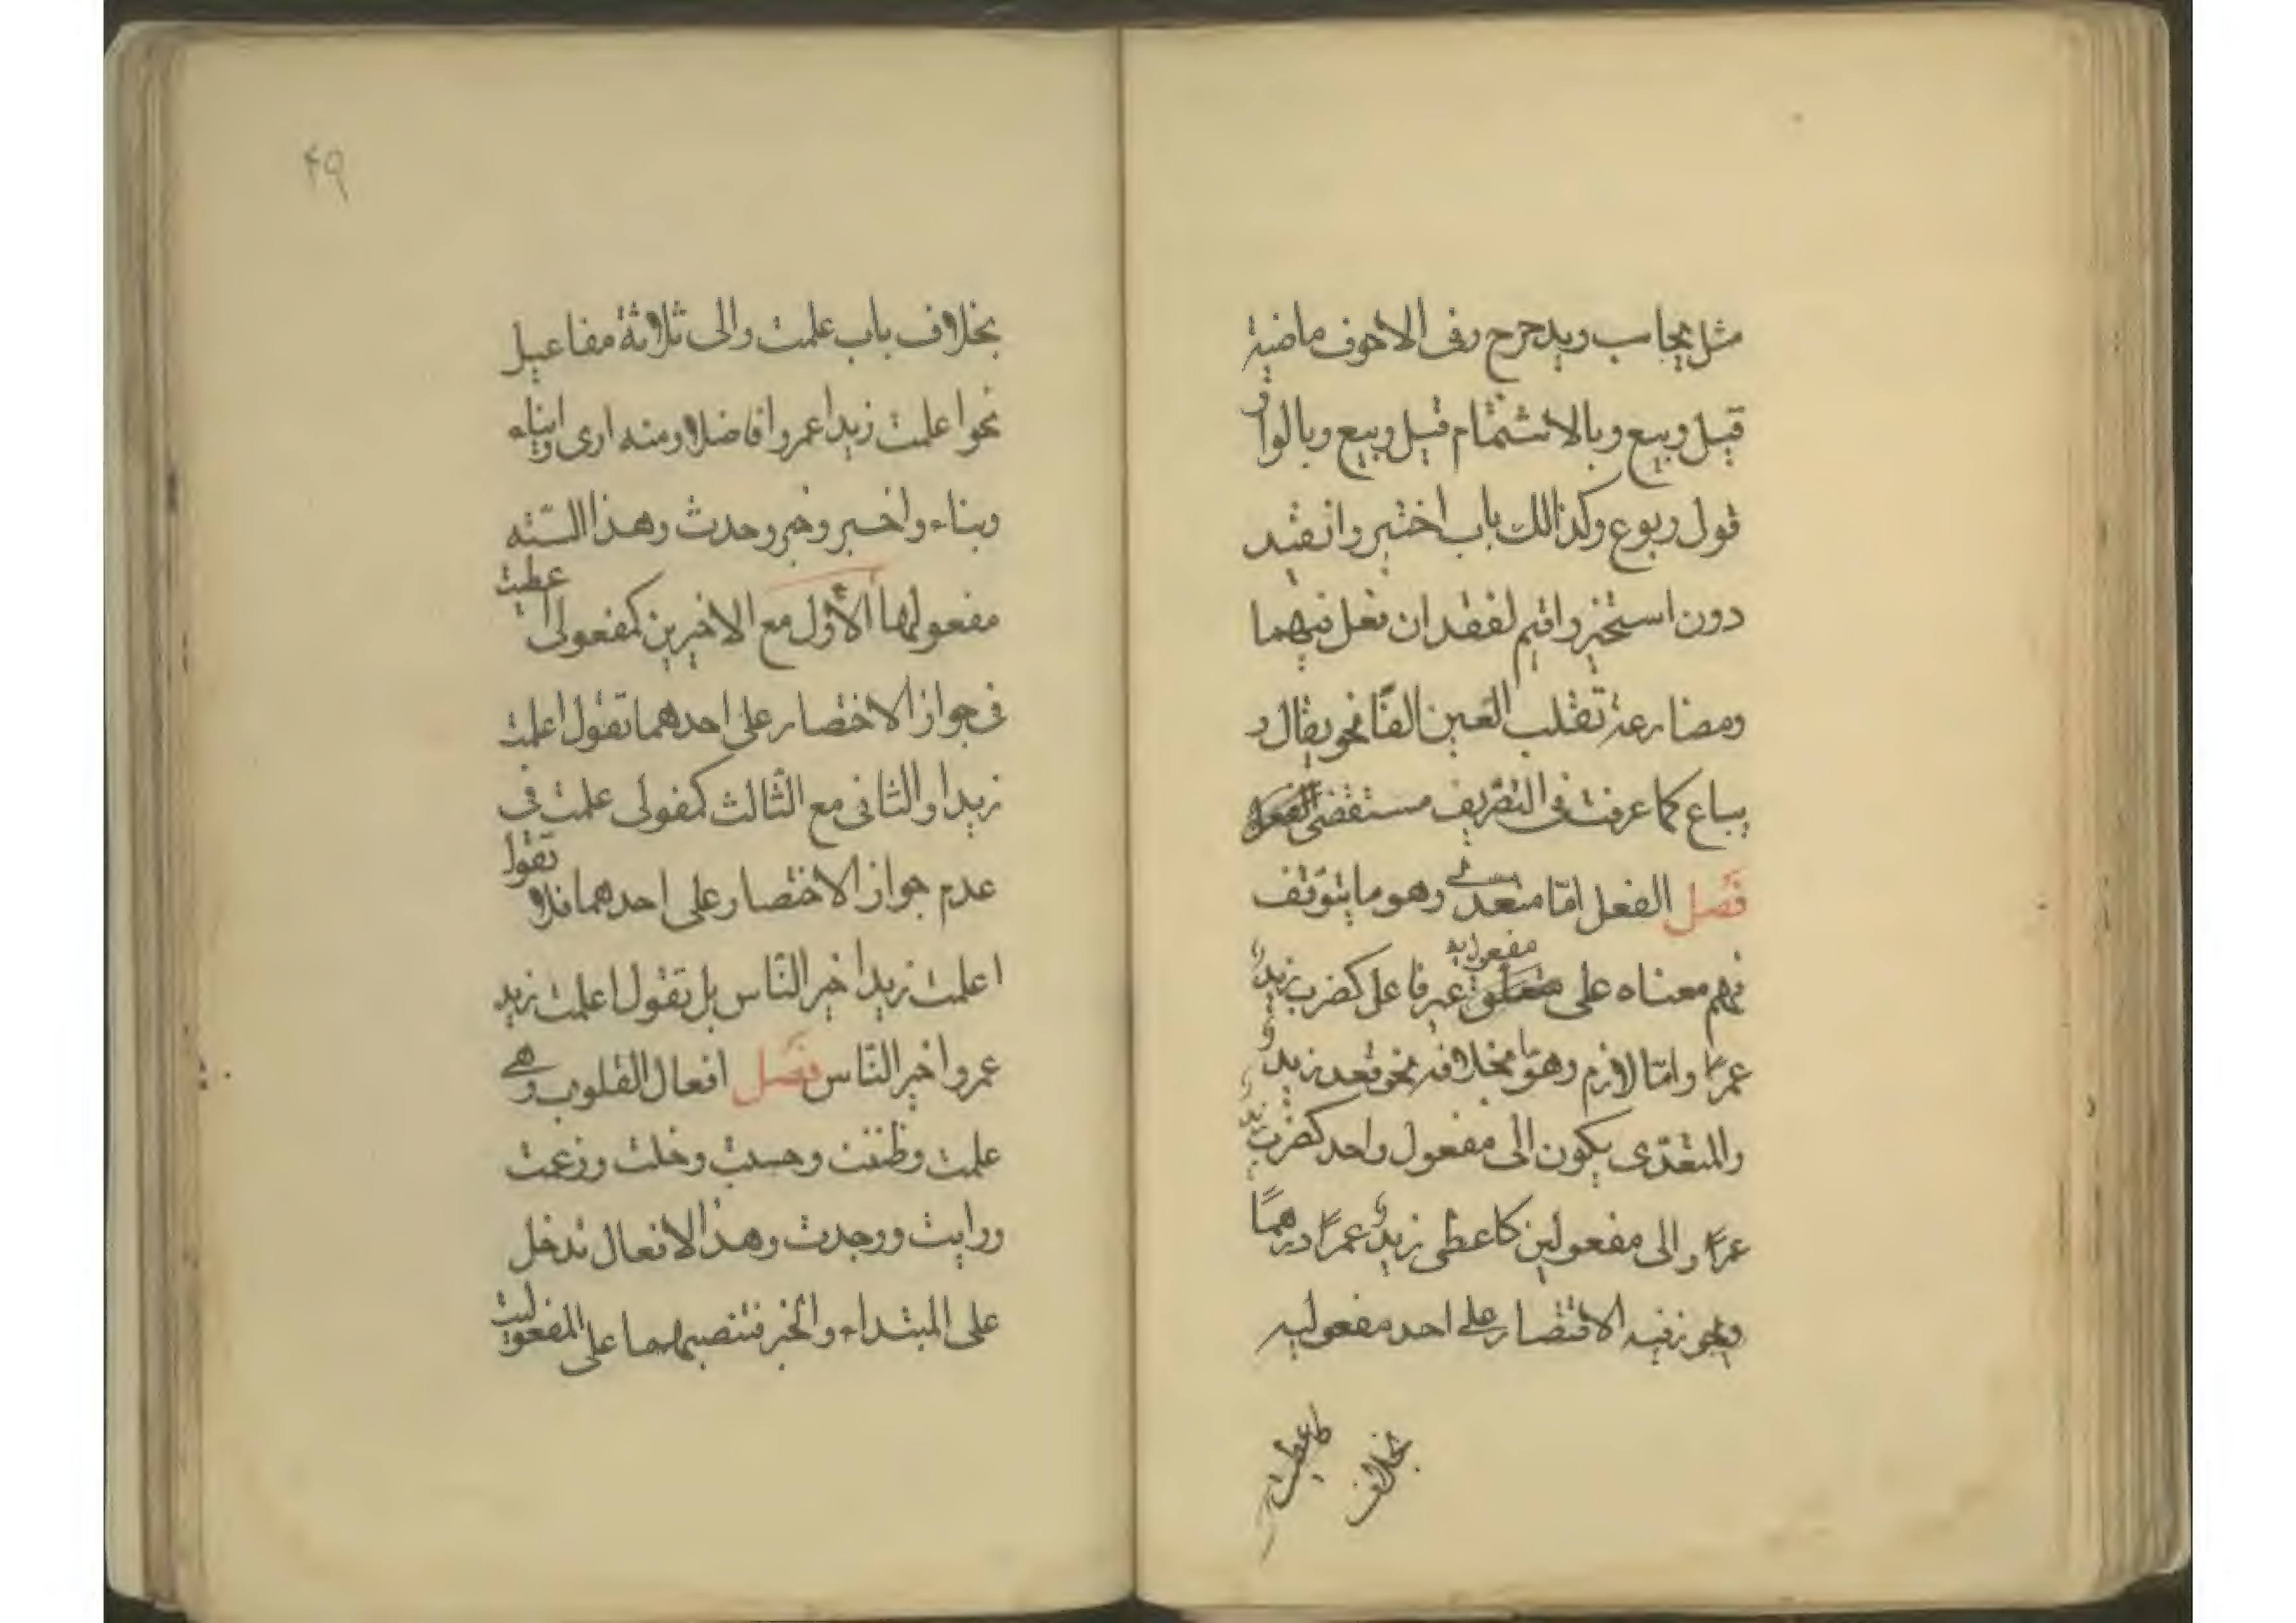 مثل يحاسب ويدحرج وفى الاجوف ماضية
قيل وبيع وبالاشمام قيل وبيع وبالواو
قول وبوع وكذالك باب اختير وانقيد
دون استخير واقيم لفقدان فعل فيهما
ومضارعة تقلب العين الفًا نحو يقال و
يباع كما عرفت فى التصريف مستقصى
فصل الفعل امّا متعدّ وهو ما يتوقف
فهم معناه على متعلق مفعول به غير فاعل كضرب زيد
عمرًا وامّا لازم وهو ما بخلافه نحو قعد زيد و
والمتعدّى يكون الى مفعول واحد كضرب زيد
عمرًا والى مفعولين كاعطى زيد عمرًا درهمًا
ويجوز فيه الاقتصار على احد مفعوليه
كاعطيت
بخلاف
٤٩
بخلاف باب علمت والى ثلاثة مفاعيل
نحو اعلمت زيدا عمروا فاضلا ومنه ارى وانباء
ونباء واخبر وخبر وحدث وهذا الستّه
مفعولها الأول مع الاخيرين كمفعولى اعطيت
فى جواز الاختصار على احدهما تقول اعلمت
زيدا والثانى مع الثالث كمفولى علمت فى
عدم جواز الاختصار على احدهما فلا تقول
اعلمت زيدا خير النّاس بل تقول اعلمت زيد
عمروا خير النّاس فصل افعال القلوب وهى
علمت وظننت وحسبت وخلت وزعمت
ورايت ووجدت وهذا الافعال تدخل
على المبتداء والخبر فتنصبهما على المفعوليت